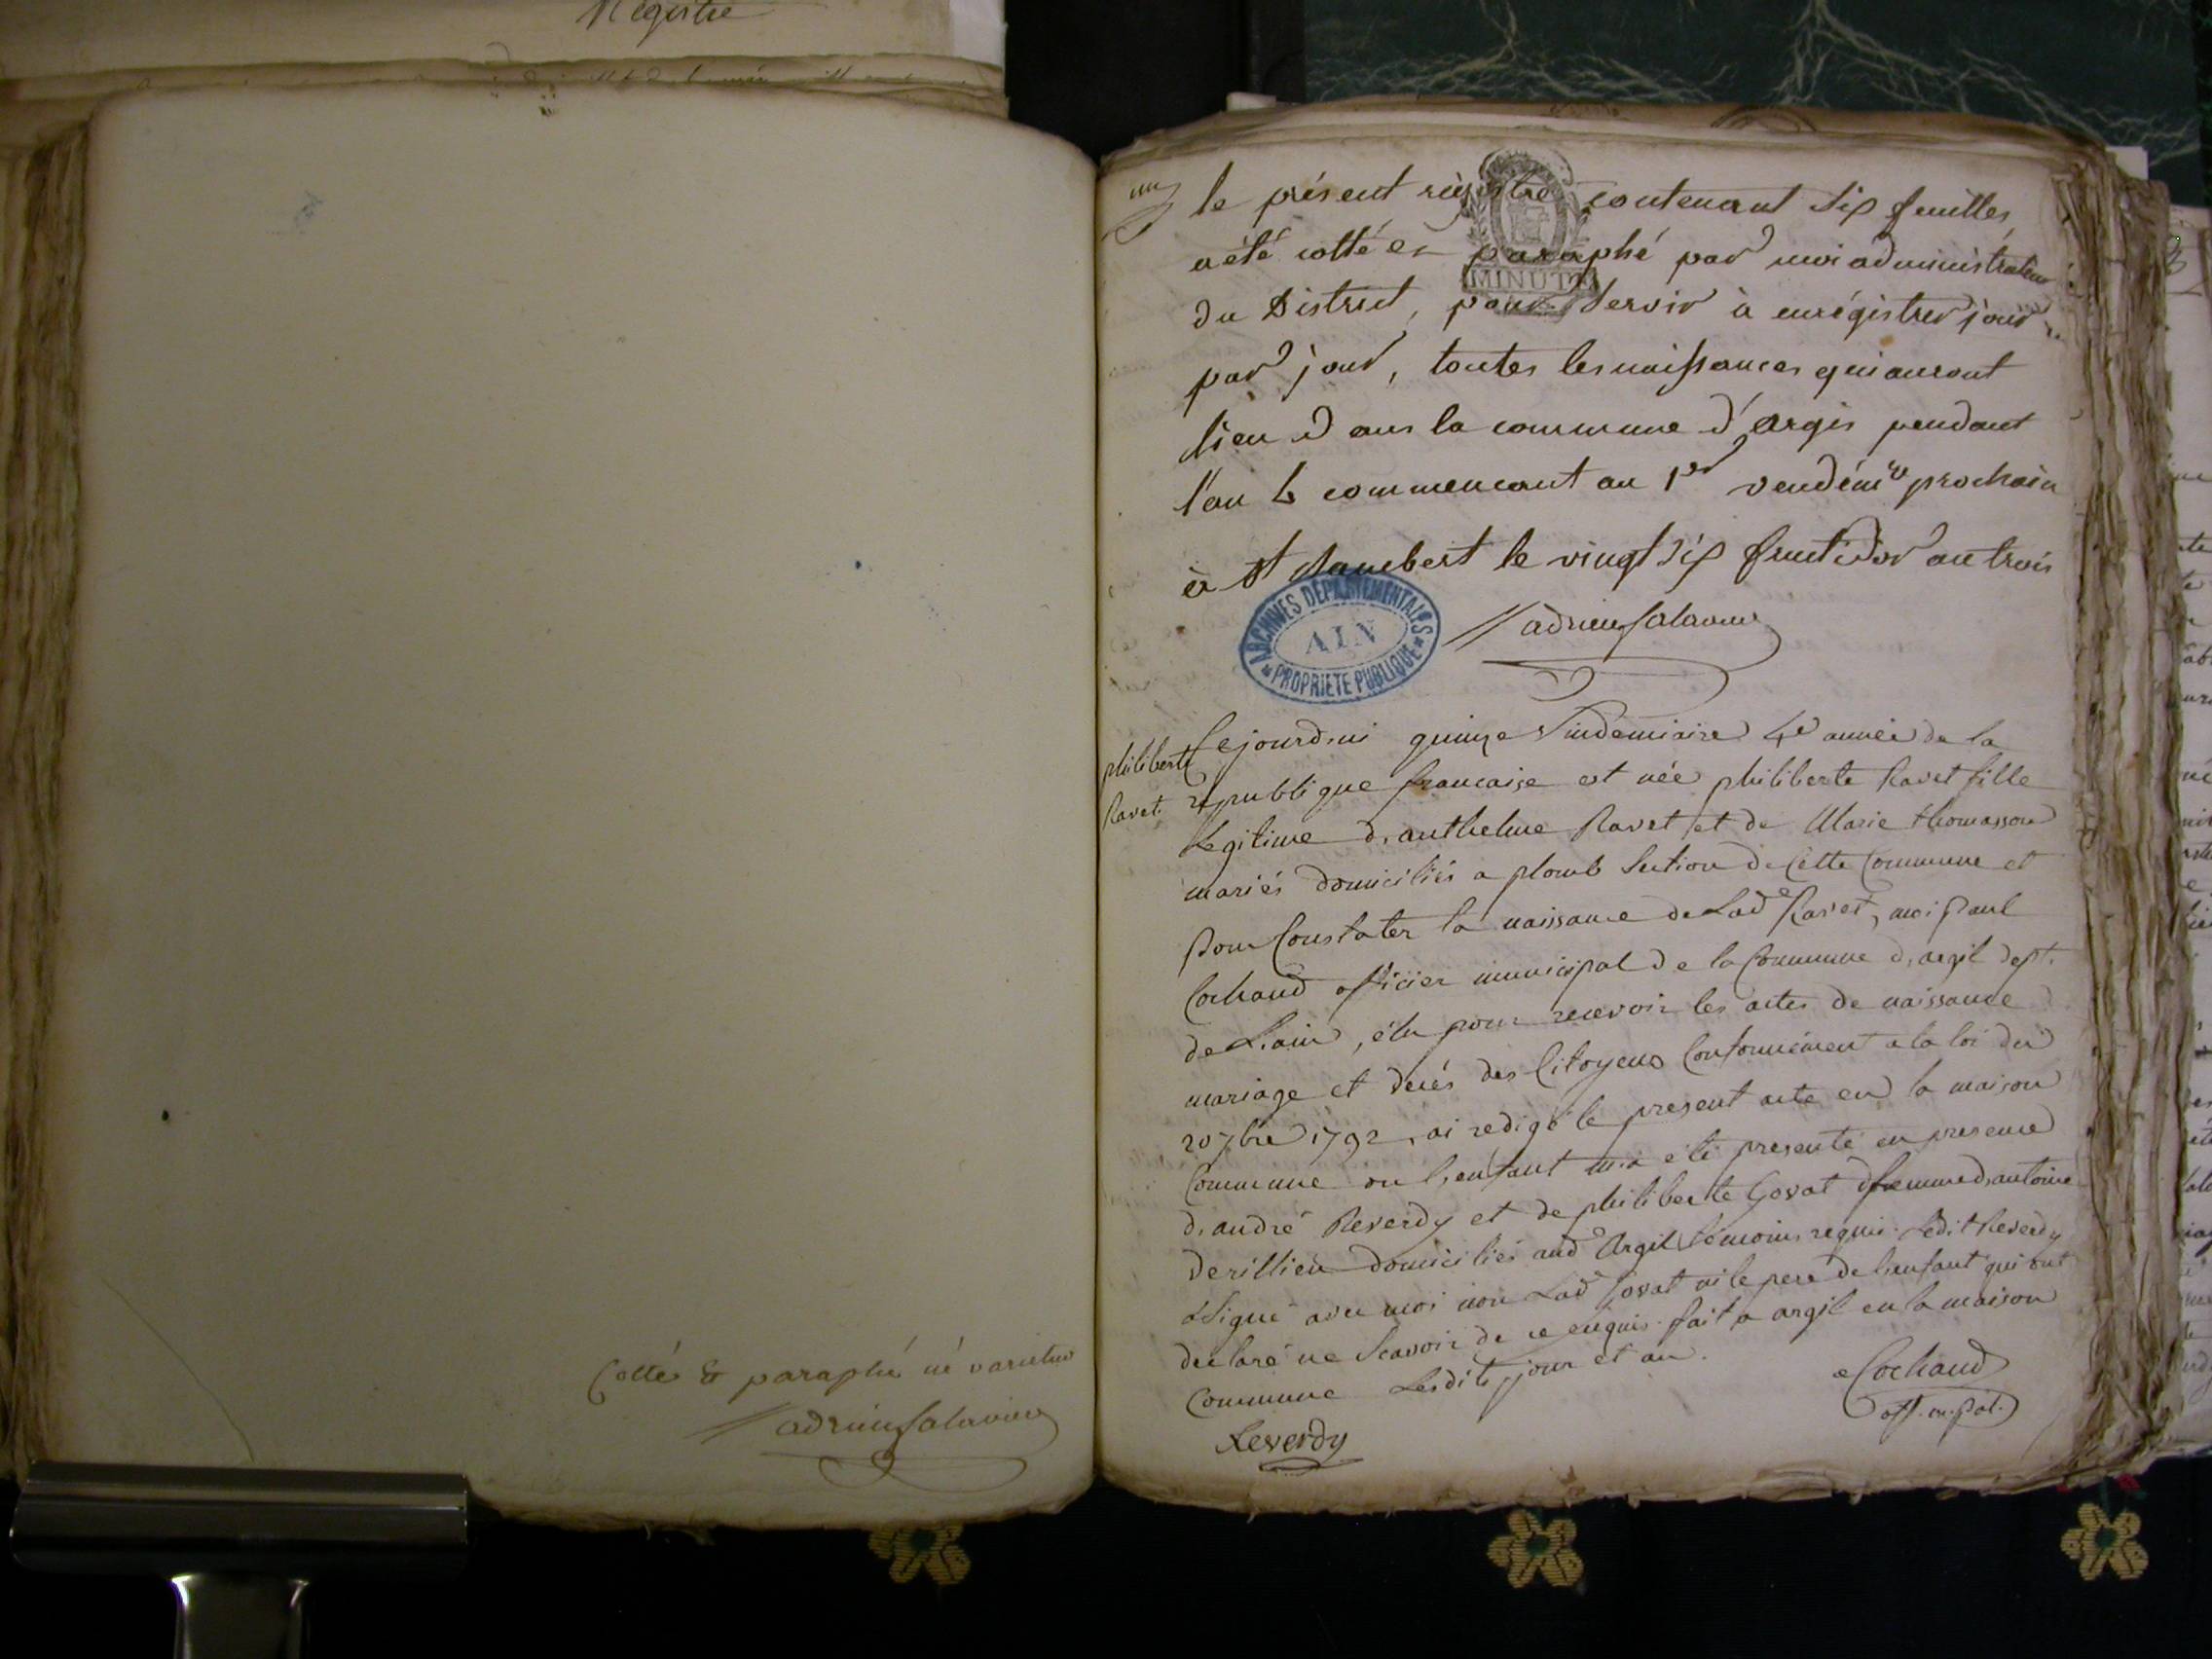 Régistre
Cotté & paraphé né varietur
adrien Salavin
un
le présent régistre contenant six feuilles
a été cotté et paraphé par moi administrateur
MINUTE
du District, pour servir à enrégistrer jour
par jour, toutes les naissances qui auront
lieu dans la commune d'argis pendant
l'an 4 commencant au 1er vendém.re prochain
à St Rambert le vingt six fructidor an trois
adrien Salavin
ARCHIVES DÉPARTEMENTALES
AIN
PROPRIÉTÉ PUBLIQUE
philiberte
Ravet
Cejourdui quinze Vindemiaire 4e année de la
republique francaise est née philiberte Ravet fille
Legitime d,anthelme Ravet et de Marie thomasson
mariés domiciliés a plomb Section de Cette Commune et
pour Constater la naissance de Lade Ravet, moi paul
Cochaud officier municipal de la Commune d,argil dept.
de L,ain, élu pour recevoir les actes de naissance
mariage et decés des Citoyens Conformément a la loi du
20 7bre 1792, ai redigé le present acte en la maison
Commune ou l,enfant m,a été presenté en presence
d,andré Reverdy et de philiberte Govat femme d,antoine
Derillieu domiciliés aud Argil témoins requis. Ledit Reverdy
a Signé avec moi non Lade Govat ni le pere de l,enfant qui ont
declaré ne Scavoir de ce enquis. fait a argil en la maison
Commune Lesdits jour et an.
Cochaud
off. m.pal.
Reverdy